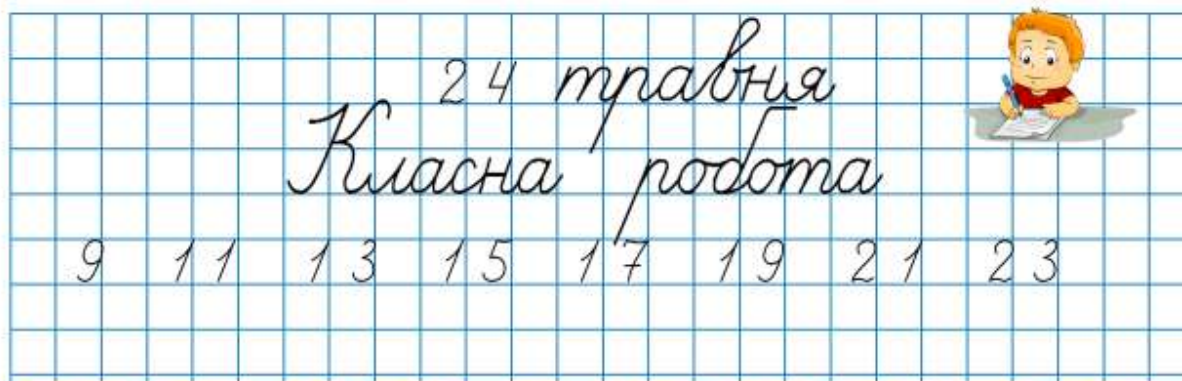 24 травня
Класна робота
9 11 13 15 17 19 21 23